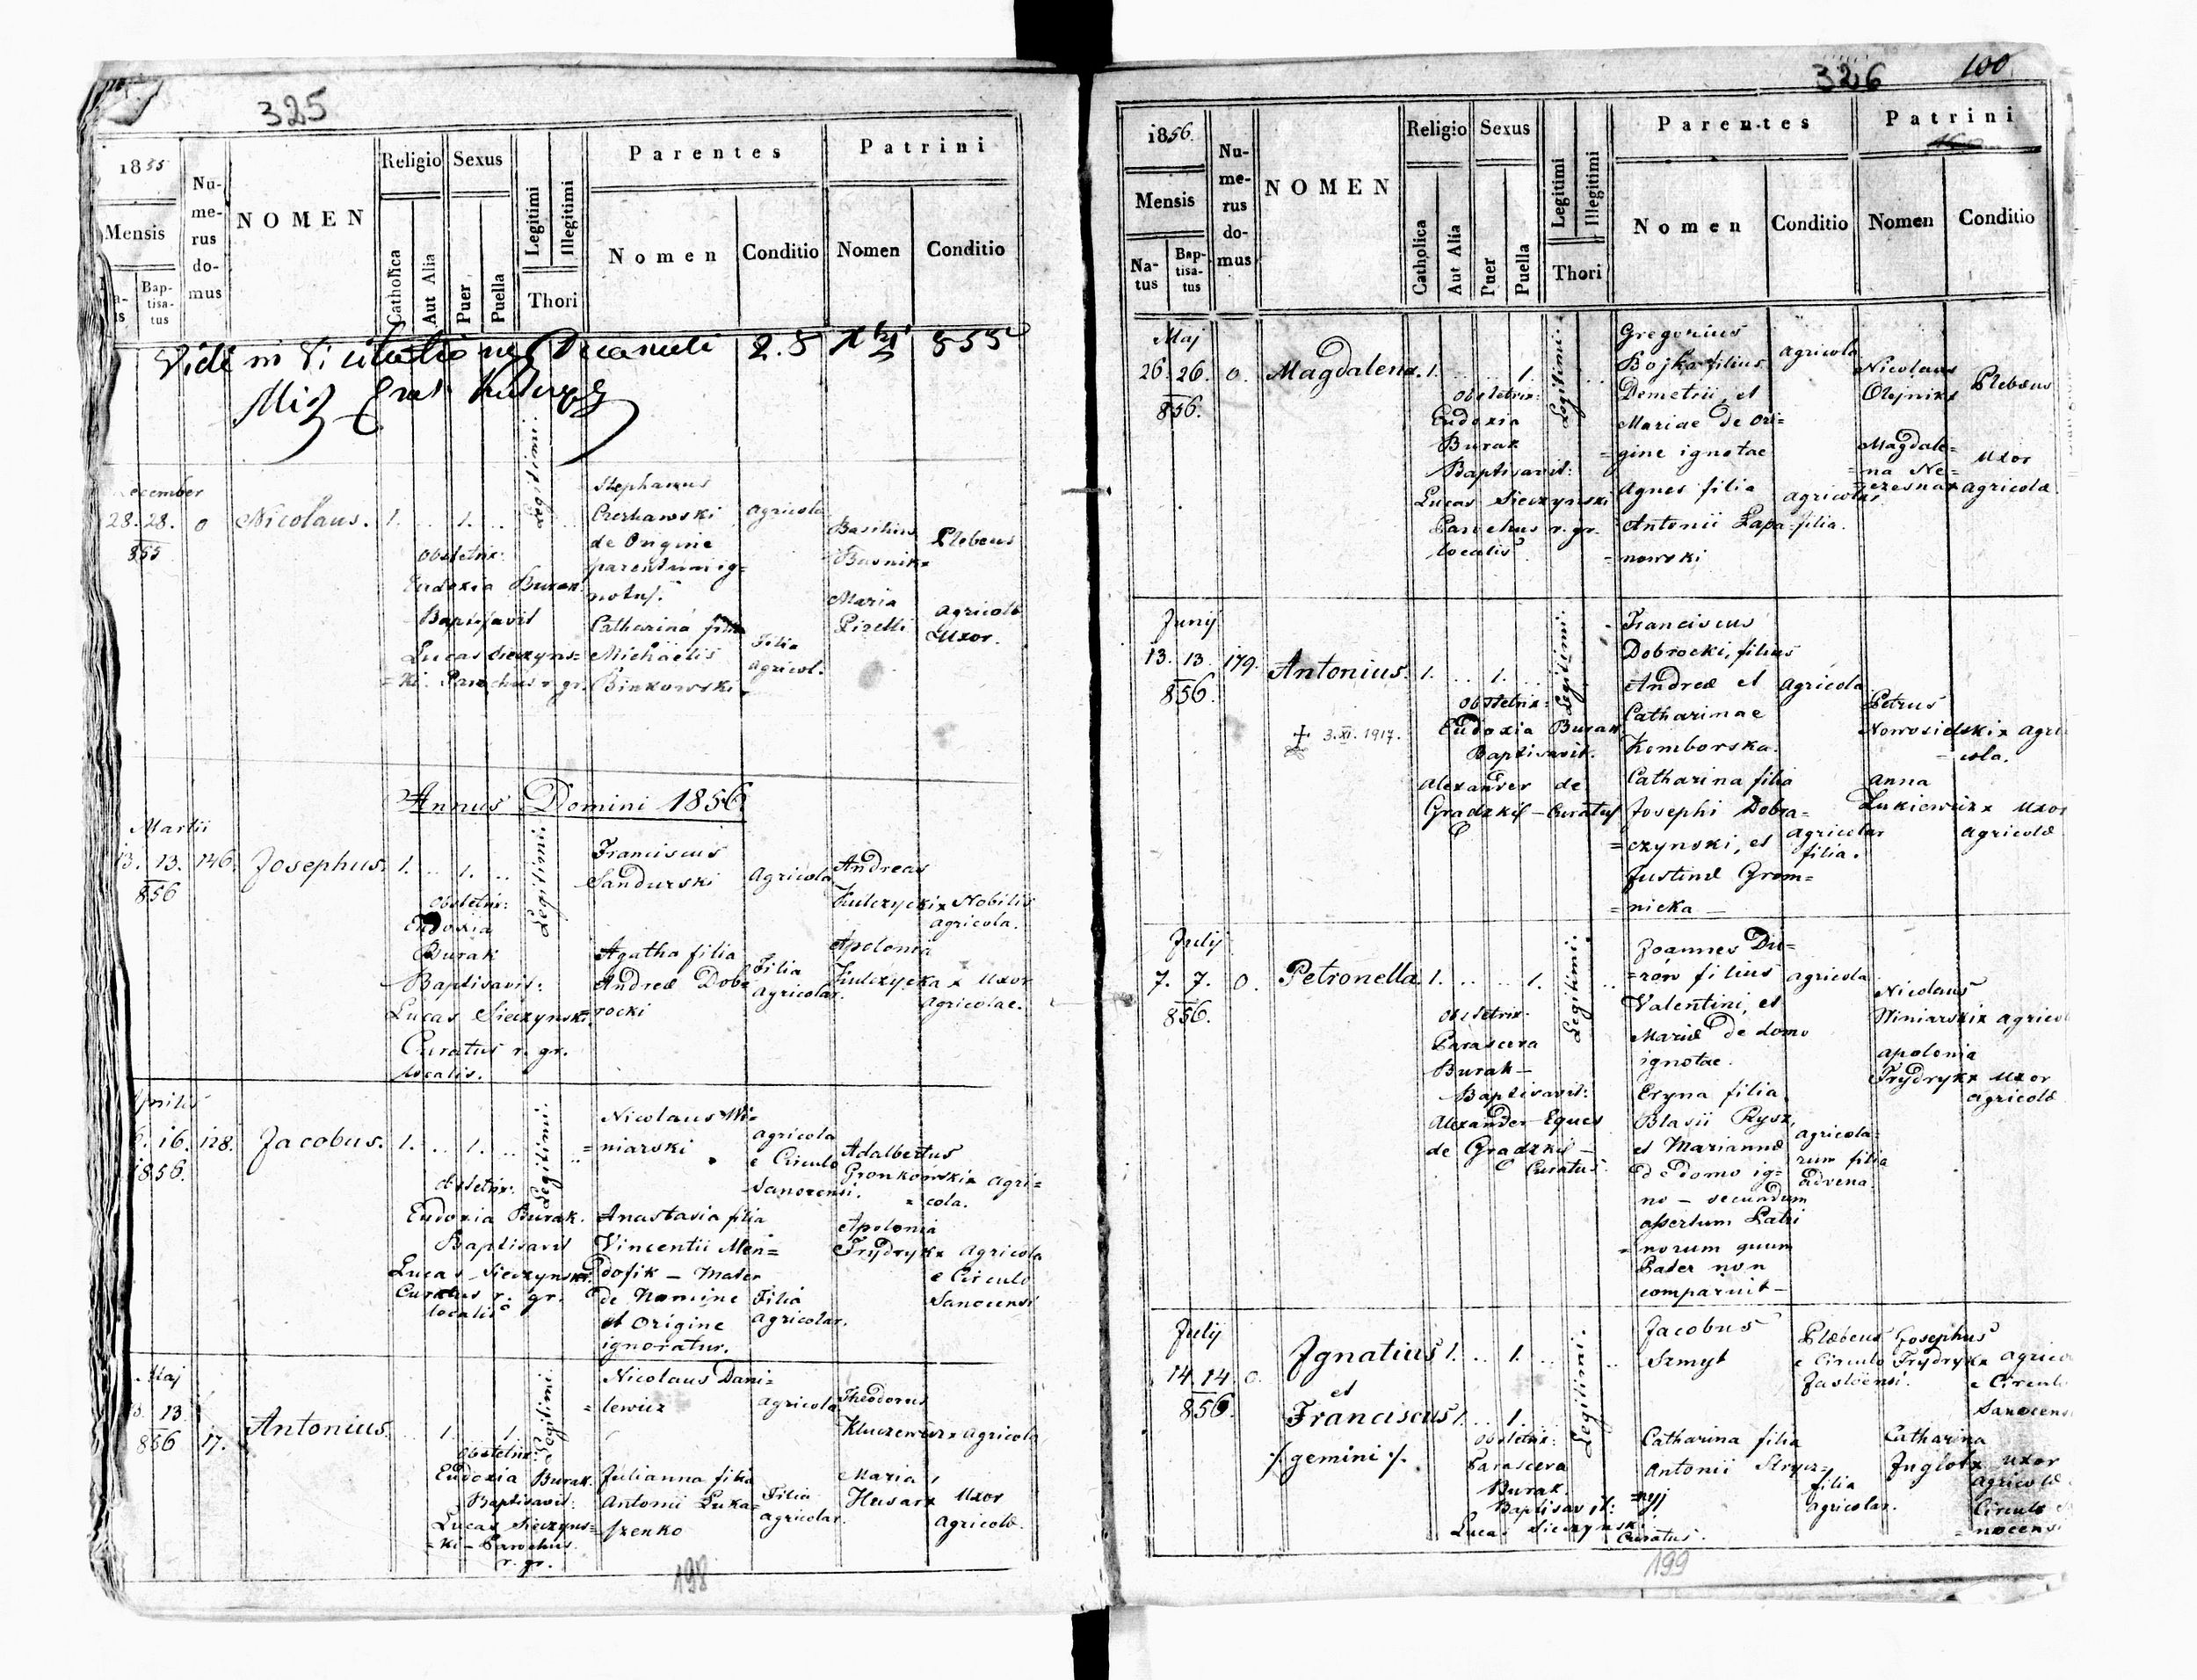 325
1855
Mensis
Baptisatus
Numerus domus
NOMEN
Religio
Catholica
Aut Alia
Sexus
Puer
Puella
Legitimi
Illegitimi
Thori
Parentes
Nomen
Conditio
Patrini
Nomen
Conditio
Vidi in Decanali 28 855
December
28. 28. 0 Nicolaus. 1. .. 1. ..
855
Legitimi
obstetrix:
Eudoxia Burak
Baptisavit
Lucas Sieczyns=
=ki Parochus r. gr.
Stephanus
Czerkawski
de Origine
parentum ig=
notus.
Catharina filia
Michaelis
Binkowski
agricola
Filia
agricol.
Basilius
Busnik x
Plebeus
Maria
Pizelli
agricolæ
Uxor.
Annus Domini 1856
Martii
13. 13. 146. Josephus. 1. .. 1. ..
856
Legitimi:
obstetrix:
Eudoxia
Burak
Baptisavit:
Lucas Sieczynski
Curatus r. gr.
localis.
Franciscus
Sandurski
agricola
Agatha filia
Andreæ Dob=
=rocki
Filia
agricolar.
Andreas
Kulczycki x Nobilis
agricola.
Apolonia
Kulczycka x Uxor
agricolae.
Aprilis
16. 128. Jacobus. 1. .. 1. ..
1856.
Legitimi:
obstetrix:
Eudoxia Burak.
Baptisavit
Lucas Sieczynski
Curatus r. gr.
localis
Nicolaus Wi=
=niarski
agricola
e Circulo
Sanocensi.
Anastasia filia
Vincentii Men=
dofik — Mater
de Nomine
et Origine
ignoratur.
Filia
agricolar.
Adalbertus
Gronkowski x agri=
= cola.
Apolonia
Frydryk x agricola
e Circulo
Sanocensi
Maj
13
856 17. Antonius. 1. 1.
Legitimi
obstetrix:
Eudoxia Burak.
Baptisavit:
Lucas Sieczyns=
=ki — Parochus
r. gr.
Nicolaus Dani=
=lewicz
agricola
Julianna filia
Antonii Luka=
szenko
Filia
agricolar.
Theodorus
Kluczewicz x agricola
Maria
Husar x Uxor
agricolæ.
198
326
100
1856.
Mensis
Natus
Baptisatus
Numerus domus
NOMEN
Religio
Catholica
Aut Alia
Sexus
Puer
Puella
Legitimi
Illegitimi
Thori
Parentes
Nomen
Conditio
Patrini
Nomen
Conditio
Maj
26. 26. 0. Magdalena. 1. .. 1.
856.
Legitimi:
obstetrix:
Eudoxia
Burak
Baptisavit:
Lucas Sieczynski
Parochus r. gr.
localis
Gregorius
Bojko filius
Demetrii, et
Mariae de Ori=
=gine ignotae
agricola
Agnes filia
Antonii Lapa=
=nowski
agricolæ
filia.
Nicolaus
Olejnik x
Plebeus
Magdale=
=na Ne=
Uxor
agricolæ
Junij
13. 13. 179. Antonius. 1. .. 1.
856.
3.XI.1917.
Legitimi:
obstetrix:
Eudoxia Burak
Baptisavit.
Alexander de
Gradzki — Curatus
Franciscus
Dobrocki, filius
Andreæ et
Catharinae
Komborska.
agricola
Catharina filia
Josephi Dobra=
=czynski, et
Justinæ Grom=
=nicka —
agricolar
filia.
Petrus
Nowosielski x agri
cola.
anna
Lukiewicz x Uxor
agricolæ
July
7. 7. 0. Petronella. 1. .. .. 1.
856.
Legitimi:
obstetrix:
Parascera
Burak —
Baptisavit:
Alexander Eques
de Gradzki —
Curatus
Joannes Du=
=ron filius
Valentini, et
Mariæ de domo
ignotae.
agricola
Eryna filia
Blasii Rysz,
et Mariannæ
de domo ig=
no — secundum
assertum Patri
=norum quum
Pater non
comparuit —
agricola=
rum filia
advena
Nicolaus
Winiarski x agricol
apolonia
Frydryk x Uxor
agricolæ
July
14. 14. 0. Ignatius 1. .. 1. ..
856.
et
Franciscus 1. .. 1.
/ gemini /.
Legitimi:
obstetrix:
Parascera
Burak.
Baptisavit:
Lucas Sieczynski
Curatus.
Jacobus
Szmyt
Plæbeus
e Circulo
Jasloensi.
Catharina filia
Antonii
filia
agricolar.
Josephus
Frydryk x agrico
e Circulo
Sanocens
Catharina
Juglo x Uxor
agricolæ
Circulo
nocensi
199